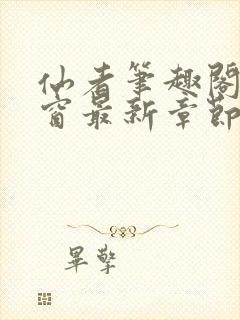 仙者笔趣阁
窗最新章节
畢擎